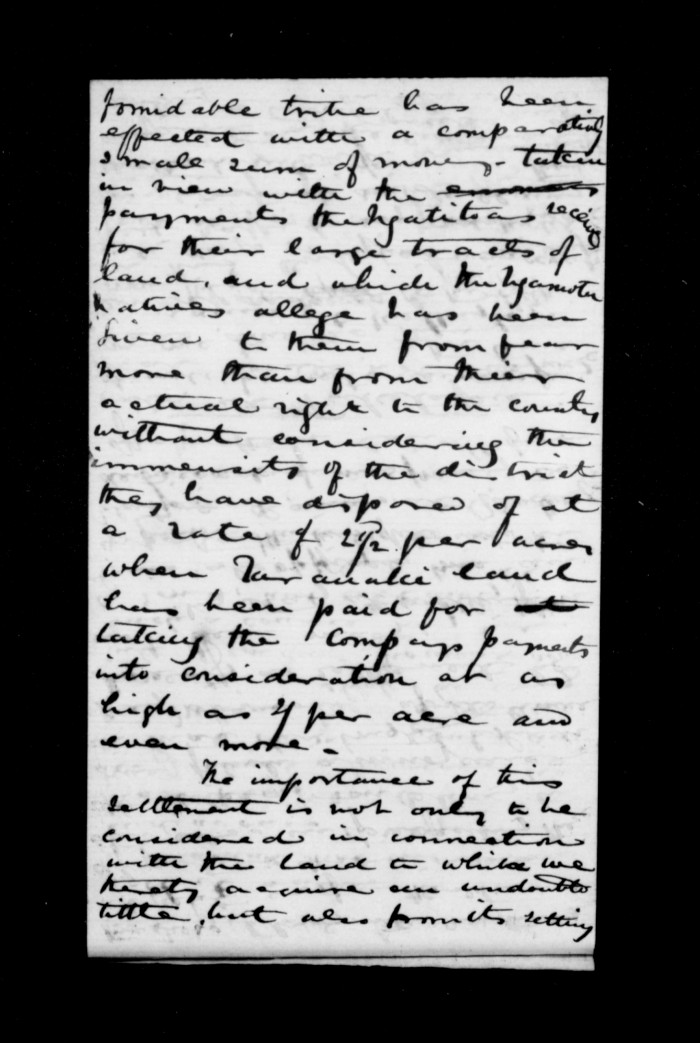 fomidable tribe has been
effected with a comparatively
small sum of money - taken
in view with the
payments the Ngatitoas receive
for their large tracts of
land, and which the Ngamotu
natives allege has been
given to them from fear
more than from their
actual right to the country
without considering the
immensity of the district
they have disposed of at
a rate of per acre
when Taranaki land
has been paid for
taking the Companys payments
into consideration at as
high as per acre and
even more -
The importance of this
settlement is not only to be
considered in connection
with the land to which we
thereby acquire an undoubted
tittle, but also from its setting